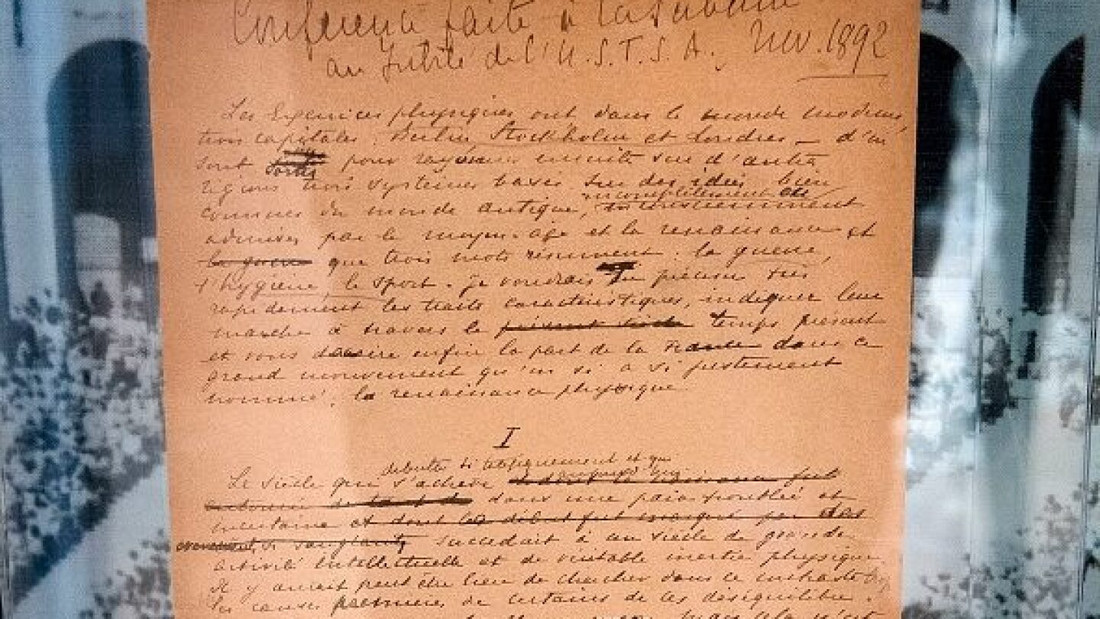 Conférence faite à la Sorbonne
au Jubilé de l'U.S.F.S.A. Nov. 1892
Les Exercices physiques ont dans le monde moderne
trois capitales : Berlin Stockholm et Londres — d'où
sont sortis pour rayonner ensuite sur d'autres
régions trois systèmes basés sur des idées bien
incomplètement
connues du monde antique,
admises par le moyen-âge et la renaissance et
la guerre que trois mots résument : la guerre,
l'hygiène, le sport. je voudrais en préciser très
rapidement les traits caractéristiques, indiquer leur
marche à travers le présent siècle temps présent
et vous dire enfin la part de la France dans ce
grand mouvement qu'on si a si justement
nommé : la renaissance physique
I
débuta si tragiquement et qui
aujourd'hui
Le siècle qui s'achève
dans une paix troublée et
incertaine et dont le début fut marqué par des
évènements si sanglants, succédait à un siècle de grande
activité Intellectuelle et de véritable inertie physique
Il y aurait peut être lieu de chercher dans ce contraste
les causes premières de certains de ces déséquilibre
mais cela n'est